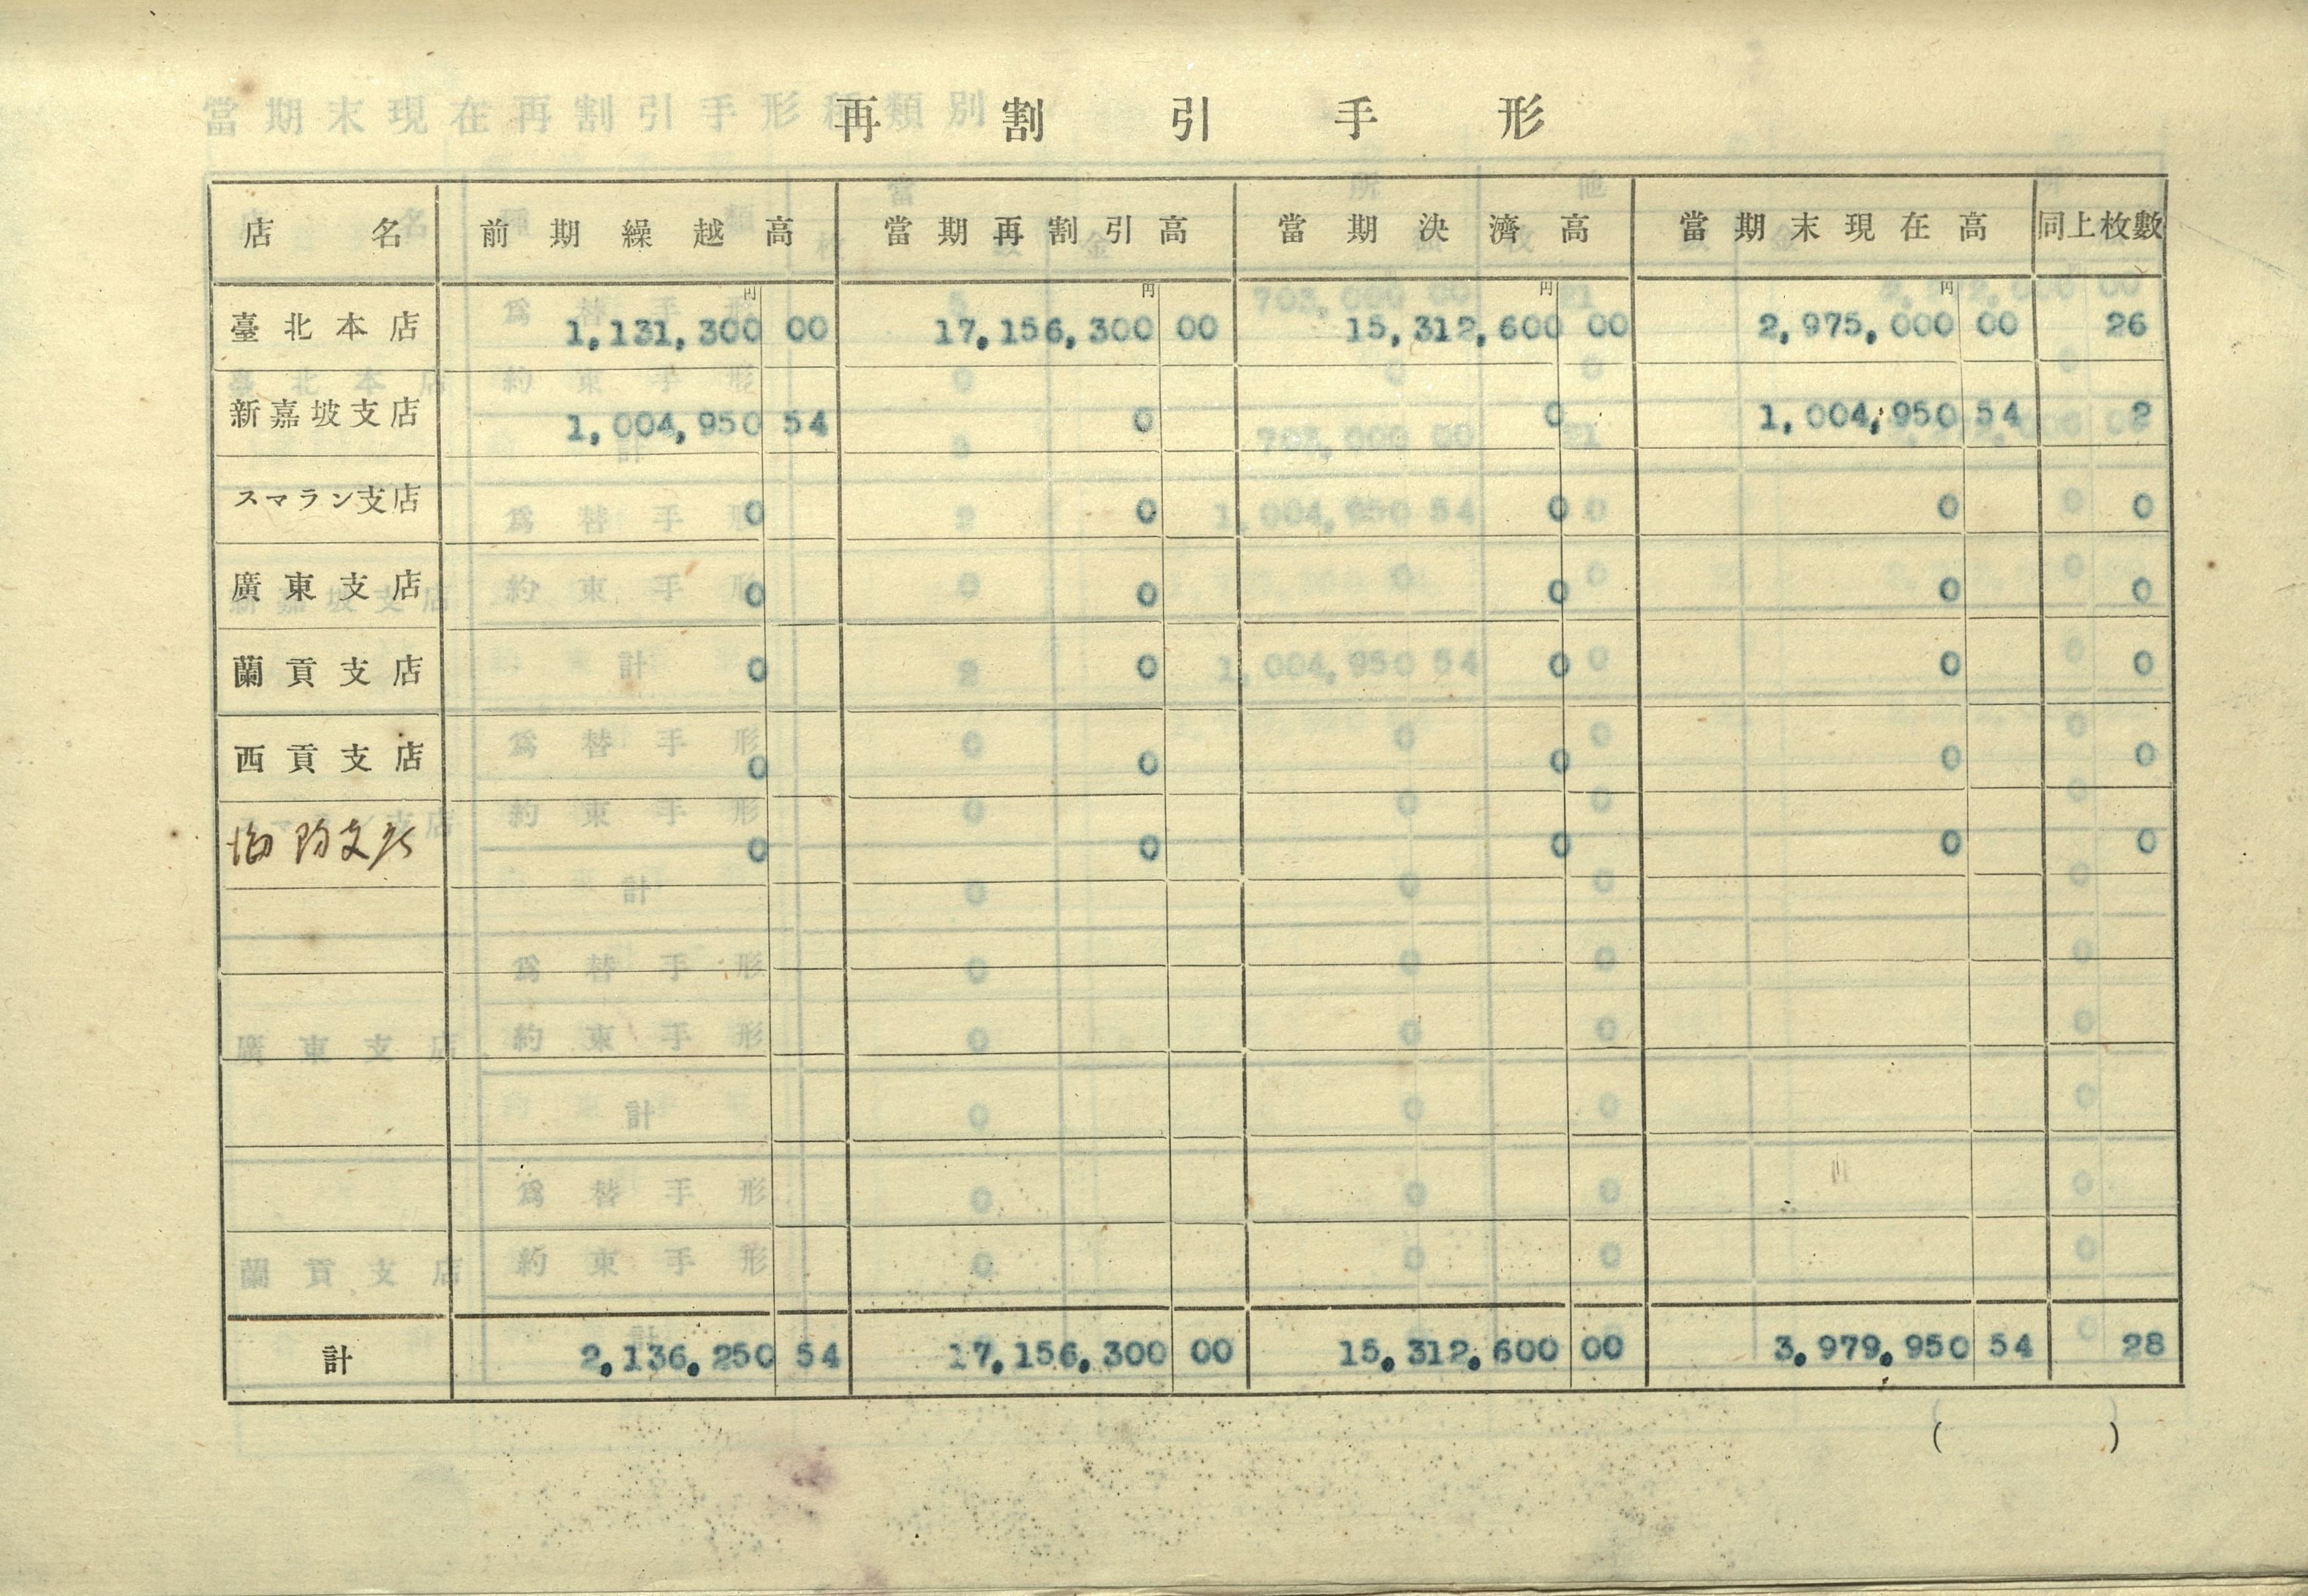 再割引手形
店名 前期繰越高 當期再割引高 當期決濟高 當期末現在高 同上枚數
円 円 円 円
臺北本店 1,131,300 00 17,156,300 00 15,312,600 00 2,975,000 00 26
新嘉坡支店 1,004,950 54 0 0 1,004,950 54 2
スマラン支店 0 0 0 0 0
廣東支店 0 0 0 0 0
蘭貢支店 0 0 0 0 0
西貢支店 0 0 0 0 0
海防支店 0 0 0 0 0
計 2,136,250 54 17,156,300 00 15,312,600 00 3,979,950 54 28
( )